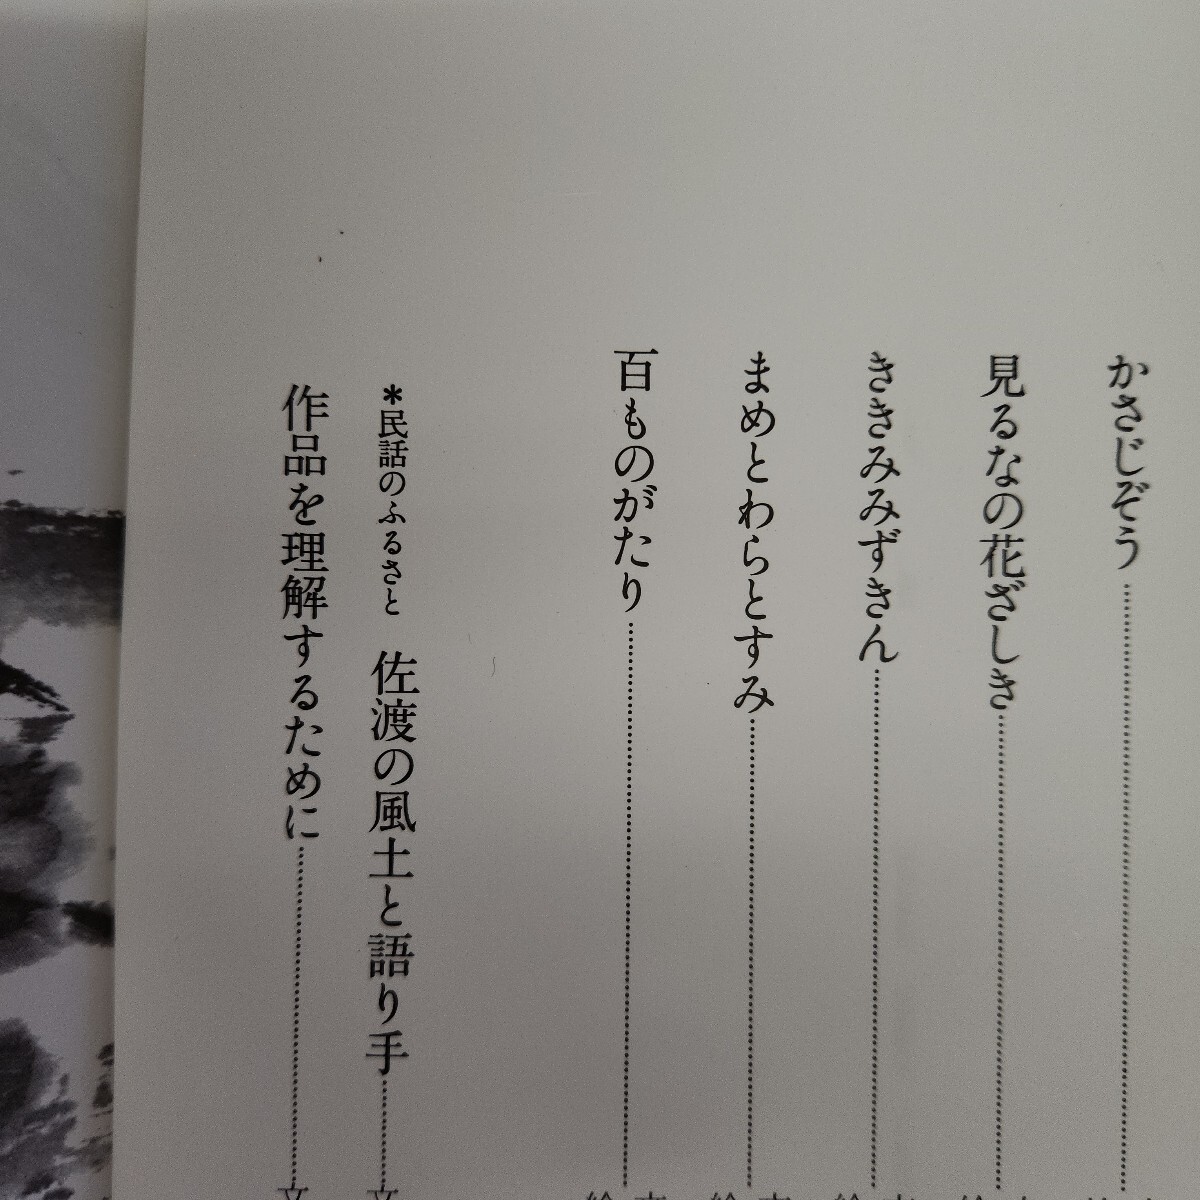 かさじぞう
見るなの花ざしき
ききみみずきん
まめとわらとすみ
百ものがたり
*民話のふるさと 佐渡の風土と語り手
作品を理解するために